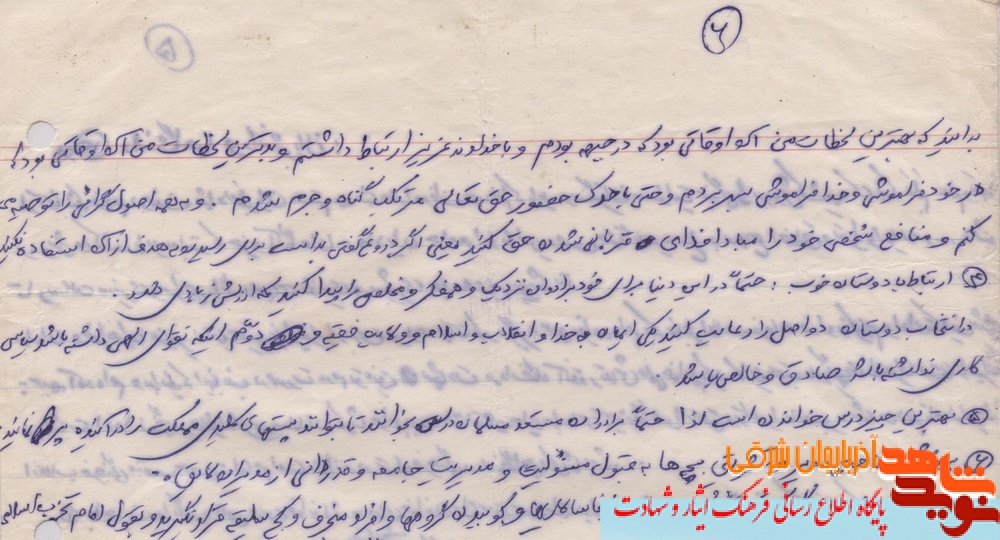 ۶
۵
بدانید که بهترین لحظات من آن اوقاتی بود که در جبهه بودم و با خداوند عزیز ارتباط داشتم و بدترین لحظات من آن اوقاتی بود که
در خود فراموشی و خدا فراموشی بسر بردم و حتی با درک حضور حق تعالی مرتکب گناه و جرم شدم. و به همه اصول گرائی را توصیه می
کنم و منافع شخصی خود را مبادا فدای قربانی شدن حق کنید یعنی اگر دروغ گفتی بد است برای رسیدن به هدف از آن استفاده نکنید
۴ ارتباط با دوستان خوب : حتماً در این دنیا برای خود برادران نزدیک و همفکر و مخلص را پیدا کنید که ارزش زیادی دارد.
در انتخاب دوستان دو اصل را رعایت کنید یکی ایمان به خدا و انقلاب و اسلام و ولایت فقیه و دوم اینکه تقوای الهی داشته باشد سیاسی
کاری نداشته باشد صادق و خالص باشد
۵ بهترین چیز درس خواندن است لذا حتماً برادران مستعد مسلمان درس بخوانند تا بتوانند پستهای کلیدی مملکت را در آینده پر نمایند
۶ بچه‌ها به قبول مسئولیت و مدیریت جامعه و قدردانی از مدیران لایق.
و کوبیدن گروهها و افراد منحرف و کج سلیقه قرار نگیرید و بقول امام
شاهد
نوید
آذربایجان شرقی
پایگاه اطلاع رسانی فرهنگ ایثار و شهادت